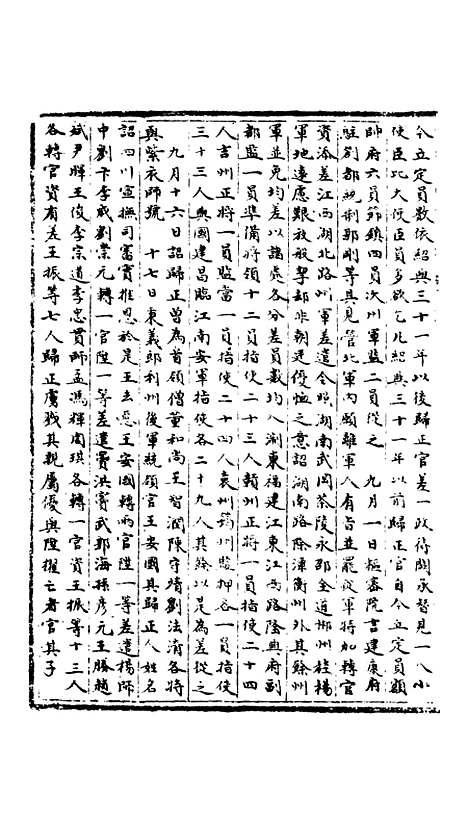 今立定員數依紹興三十一年以後歸正官差一政待闕承替見一八小
使臣比大使臣員多欲乞比紹興三十一年以前歸正官自今立定員額
帥府六員節鎮四員次州軍監二員從之　九月一日樞密院言建康府
駐劄都統制郭剛等具見管北軍內願離軍人有旨並罷從軍特加轉官
資添差江西湖北路州軍差遣令照湖南武岡茶陵永邵全道郴州桂楊
軍地遠慮艱般挈却非朝廷優恤之意詔湖南路除潭衡州外其餘州
軍並免均差以諸處各分差員數均八浙東福建江東江西路隆興府副
都監一員準備將領十二員指使二十三人贛州正將一員指使二十四
人吉州正將一員監當一員指使二十四人袁州筠州監押各一員指使
三十三人興國建昌臨江南安軍指使各二十九人其餘以是為差從之
九月十六日詔歸正曾為首領僧董和尚王智潤陳守靖劉法清各特
與紫衣師號　十七日東義郎利州後軍統領官王安國具歸正人姓名
詔四川宣撫司審實推恩於是王去惡王安國轉兩官陞一等差遣楊師
中劉卞李威劉崇元轉一官陞一等差遣竇洪竇武郭海孫彦元王勝趙
斌尹暉王俊李宗道李忠貫師孟馮輝閻琪各轉一官資王振等十三人
各轉官資有差王振等七人歸正虜戮其親屬優與陞擢亡者官其子